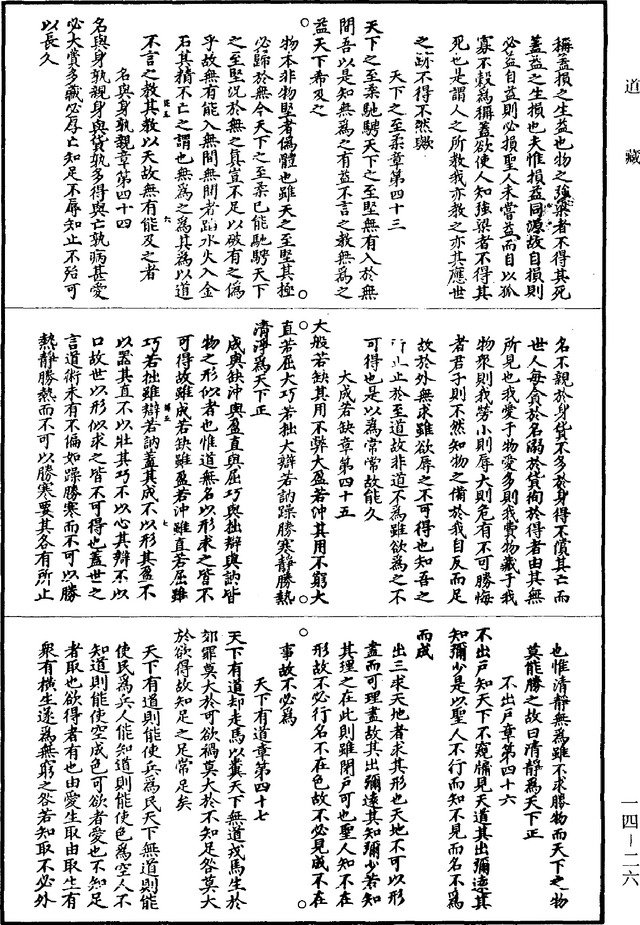 道藏
稱蓋損之生益也物之強梁者不得其死
蓋益之生損也夫惟損益同源故自損則
必益自益則必損聖人未嘗益而自以孤
寡不穀為稱蓋欲使人知強梁者不得其
死也是謂人之所教我亦教之亦其應世
之跡不得不然歟
天下之至柔章第四十三
天下之至柔馳騁天下之至堅無有入於無
間吾以是知無為之有益不言之教無為之
益天下希及之
物本非物堅者偽體也雖天之至堅其極
必歸於無今天下之至柔已能馳騁天下
之至堅況於無之真豈不足以破有之偽
乎故無有能入無間無間者蹈水火入金
石其精不亡之謂也無為之為其為以道
不言之教其教以天故無有能及之者
名與身孰親章第四十四
名與身孰親身與貨孰多得與亡孰病甚愛
必大費多藏必厚亡知足不辱知止不殆可
以長久
名不親於身貨不多於身得不償其亡而
世人每貪於名溺於貨徇於得者由其無
所見也我愛于物愛多則我費物藏于我
物眾則我勞小則辱大則危有不可勝悔
者君子則不然知物之備於我自反而足
故於外無求雖欲辱之不可得也知吾之
止止於至道故非道不為雖欲為之不
可得也是以為常常故能久
大成若缺章第四十五
大般若缺其用不弊大盈若沖其用不窮大
直若屈大巧若拙大辯若訥躁勝寒靜勝熱
清淨為天下正
成與缺沖與盈直與屈巧與拙辯與訥皆
物之形似者也惟道無名以形求之皆不
可得故雖成若缺雖盈若沖雖直若屈雖
巧若拙雖辯若訥蓋其成不以形其盈不
以器其直不以壯其巧不以心其辯不以
口故世以形似求之皆不可得也蓋世之
言道術未有不偏如躁勝寒而不可以勝
熱靜勝熱而不可以勝寒要其各有所止
也惟清靜無為雖不求勝物而天下之物
莫能勝之故曰清靜為天下正
不出戶章第四十六
不出戶知天下不窺牖見天道其出彌遠其
知彌少是以聖人不行而知不見而名不為
而成
出三求天地者求其形也天地不可以形
盡而可理盡故其出彌遠其知彌少若知
其理之在此則雖閉戶可也聖人知不在
形故不必行名不在色故不必見成不在
事故不必為
天下有道章第四十七
天下有道却走馬以糞天下無道戎馬生於
郊罪莫大於可欲禍莫大於不知足咎莫大
於欲得故知足之足常足矣
天下有道則能使兵為民天下無道則能
使民為兵人能知道則能使色為空人不
知道則能使空成色可欲者愛也不知足
者取也欲得者有也由愛生取由取生有
眾有橫生遂為無窮之咎若知取不必外
一四-二六